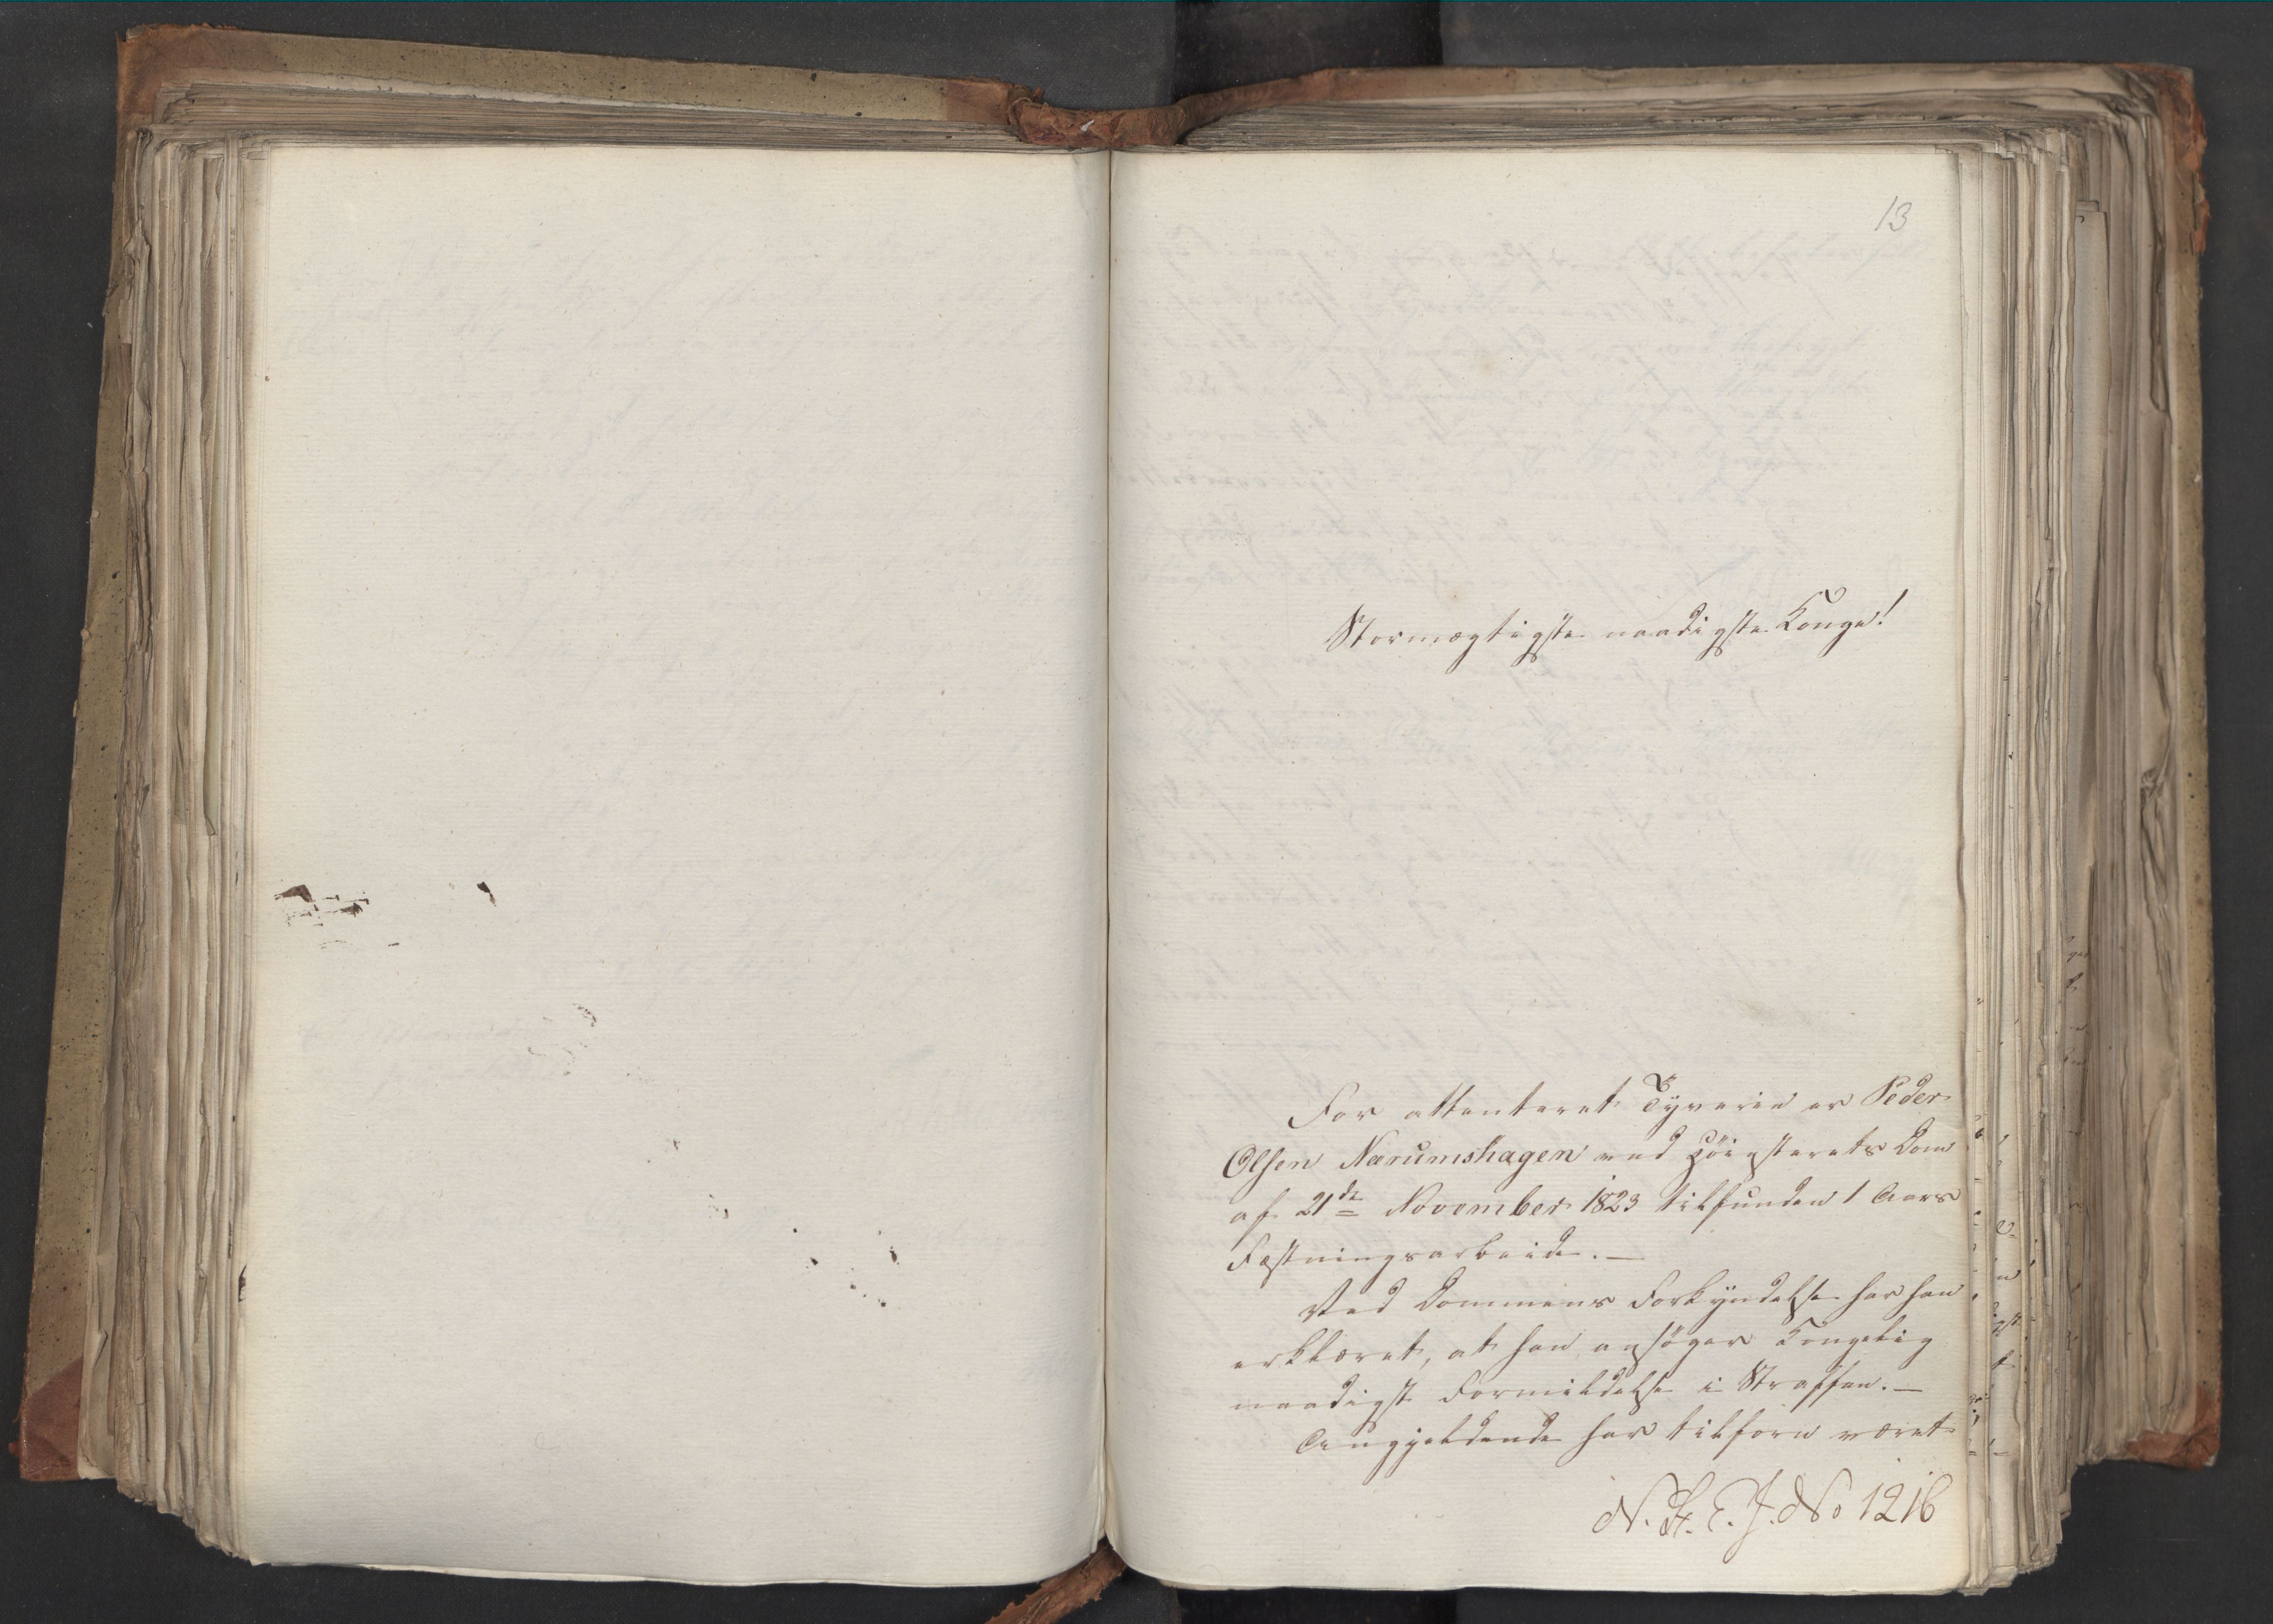 13
Stormægtigste naadigste Konge!
For attenteret Tyverie er Peder
Olsen Nærumshagen ved Høiesterets Dom
af 21de November 1823 tilfunden 1 Aars
Fæstningsarbeide. —
Ved Dommens Forkyndelse har han
erklæret, at han ansøger Kongelig
naadigst Formildelse i Straffen. —
Angjeldende har tilforn været
N. St. E. J. No 1216